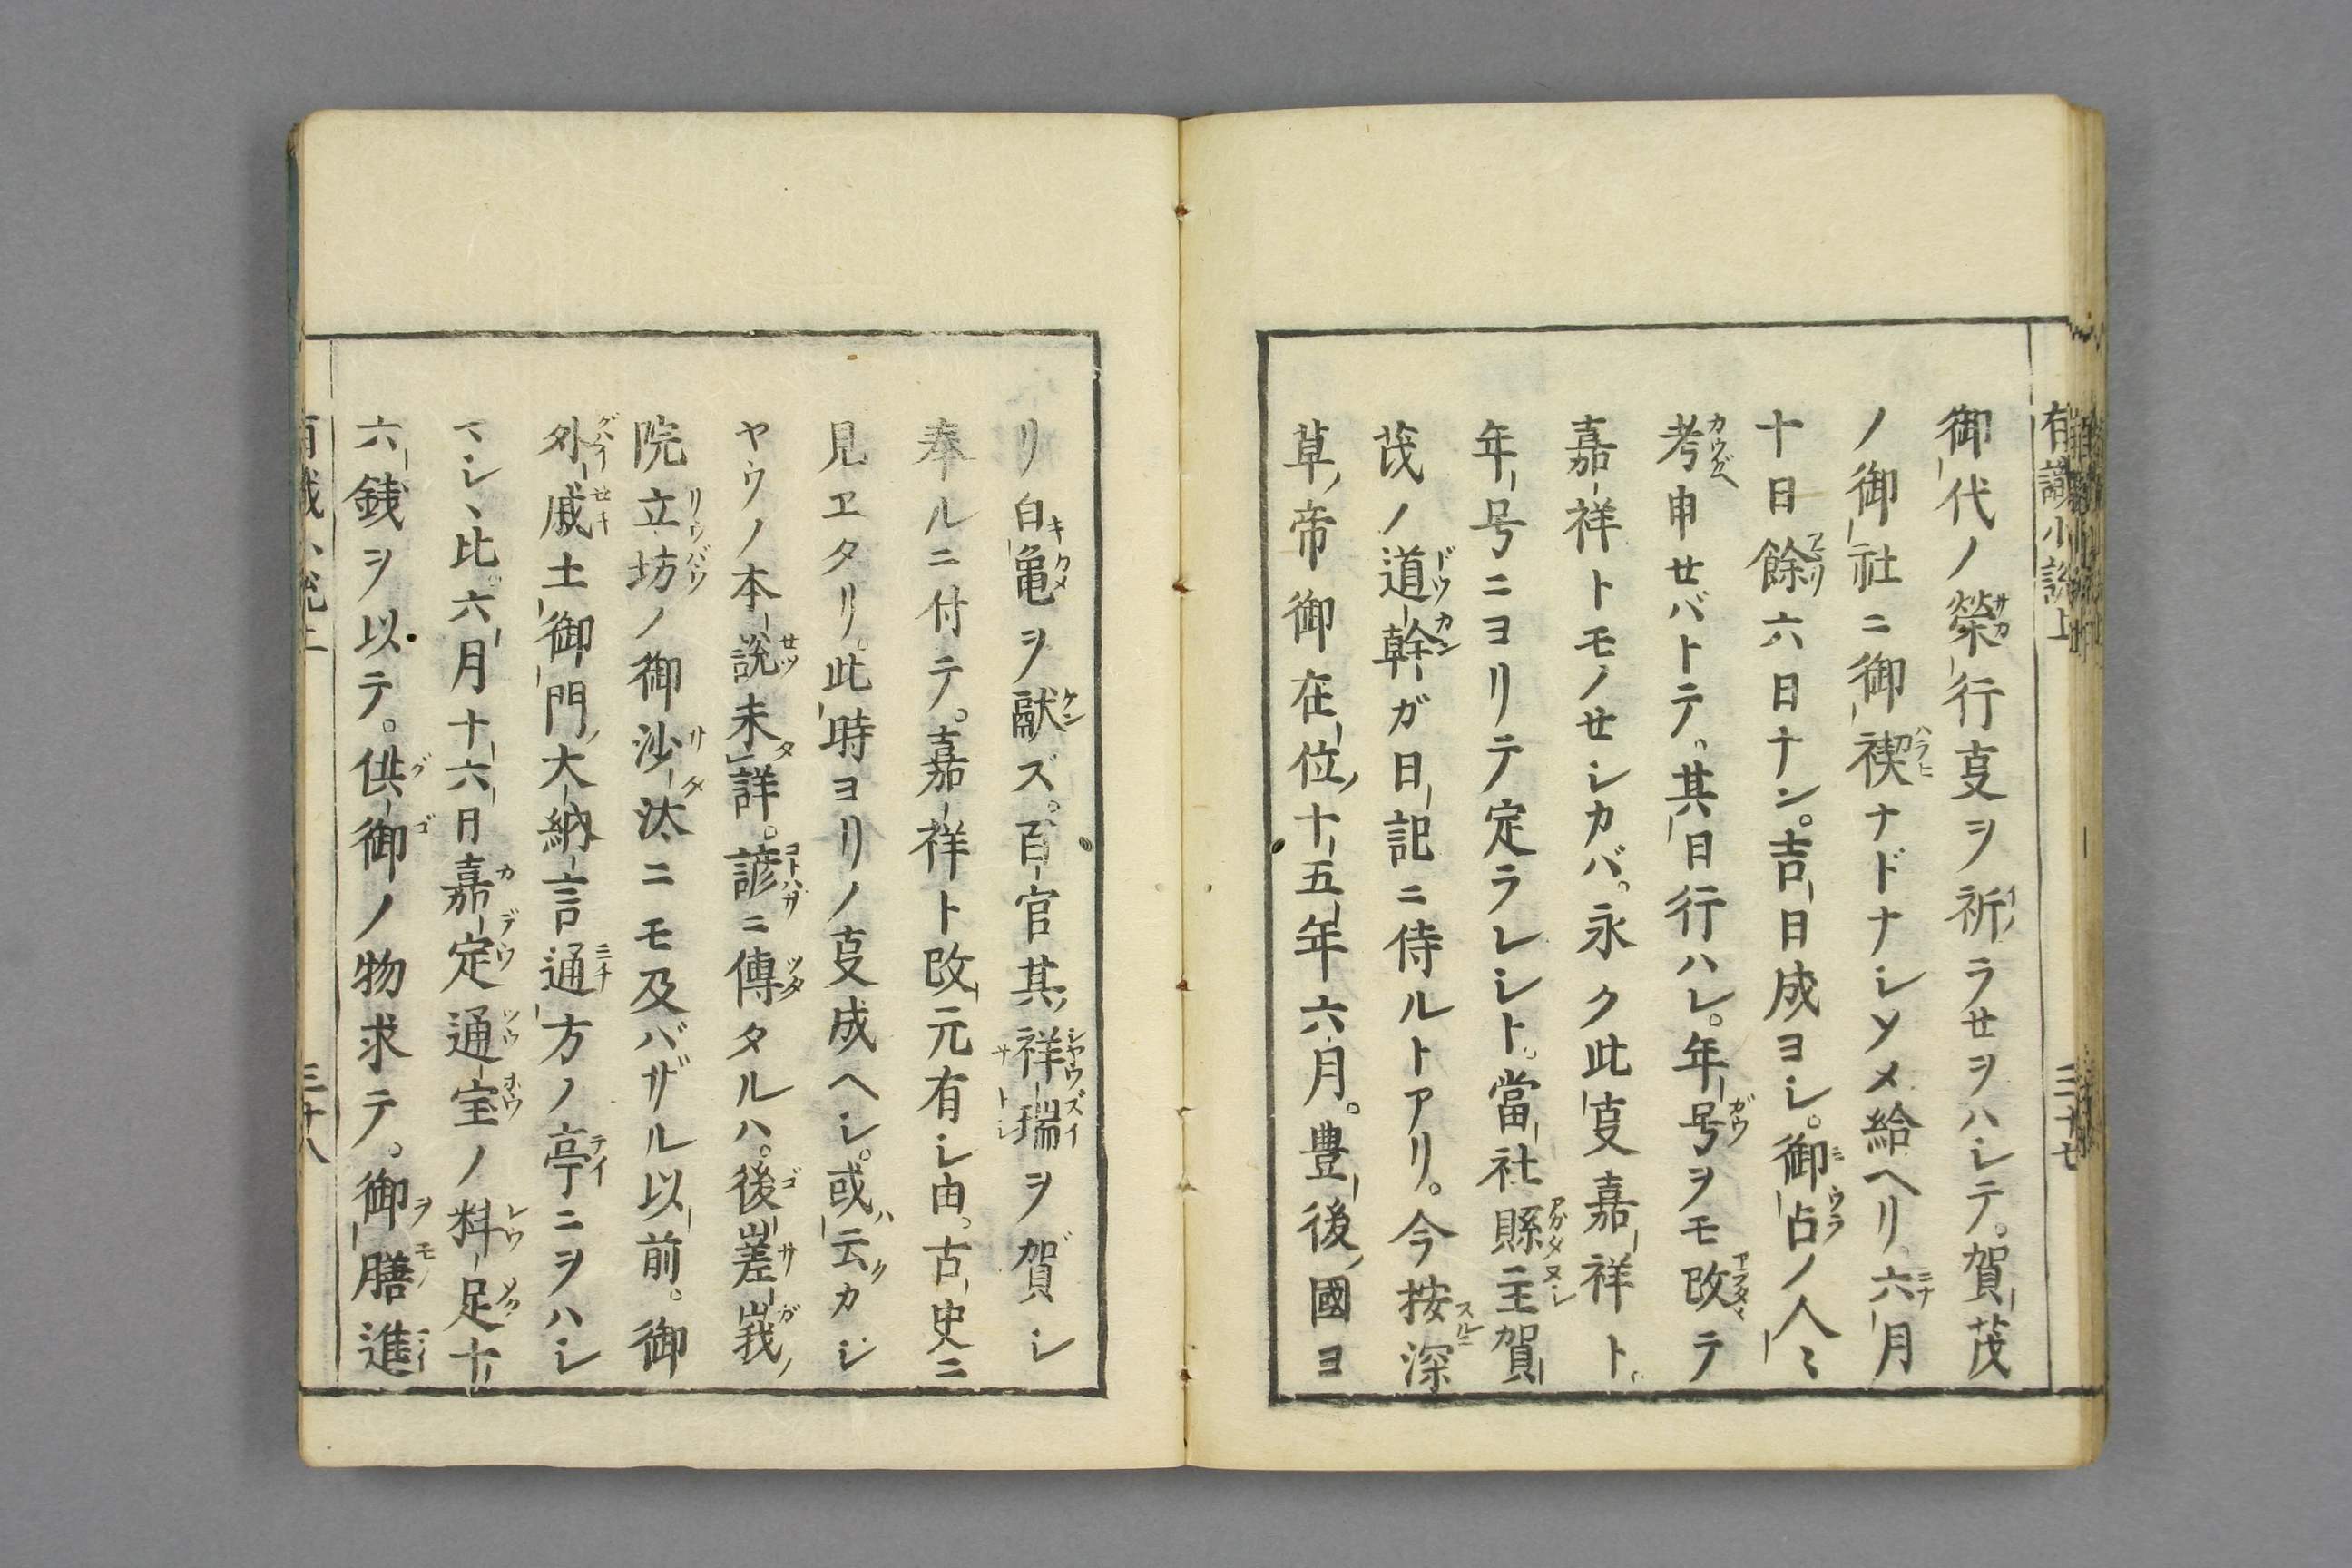 有識小説上
三十七
御代ノ榮行叓ヲ祈ラセヲハシテ。賀茂
ノ御社ニ御禊ナドナシソメ給ヘリ。六月
十日餘六日ナン。吉日成ヨシ。御占ノ人〻
考申セバトテ。其日行ハレ。年号ヲモ改テ
嘉祥トモノセシカバ。永ク此叓嘉祥ト。
年号ニヨリテ定ラレシト。當社縣主賀
茂ノ道幹ガ日記ニ侍ルトアリ。今按深
草帝御在位十五年六月。豊後國ヨ
リ白亀ヲ献ズ。百官其祥瑞ヲ賀シ
奉ルニ付テ。嘉祥ト改元有シ由。古史ニ
見ヱタリ。此時ヨリノ叓成ヘシ。或云カジ
ヤウノ本説未詳。諺ニ傳タルハ。後嵯峩
院立坊ノ御沙汰ニモ及バザル以前。御
外戚土御門大納言通方ノ亭ニヲハシ
マシヽ比。六月十六日嘉定通宝ノ料足十
六銭ヲ以テ。供御ノ物求テ。御膳進
三十八